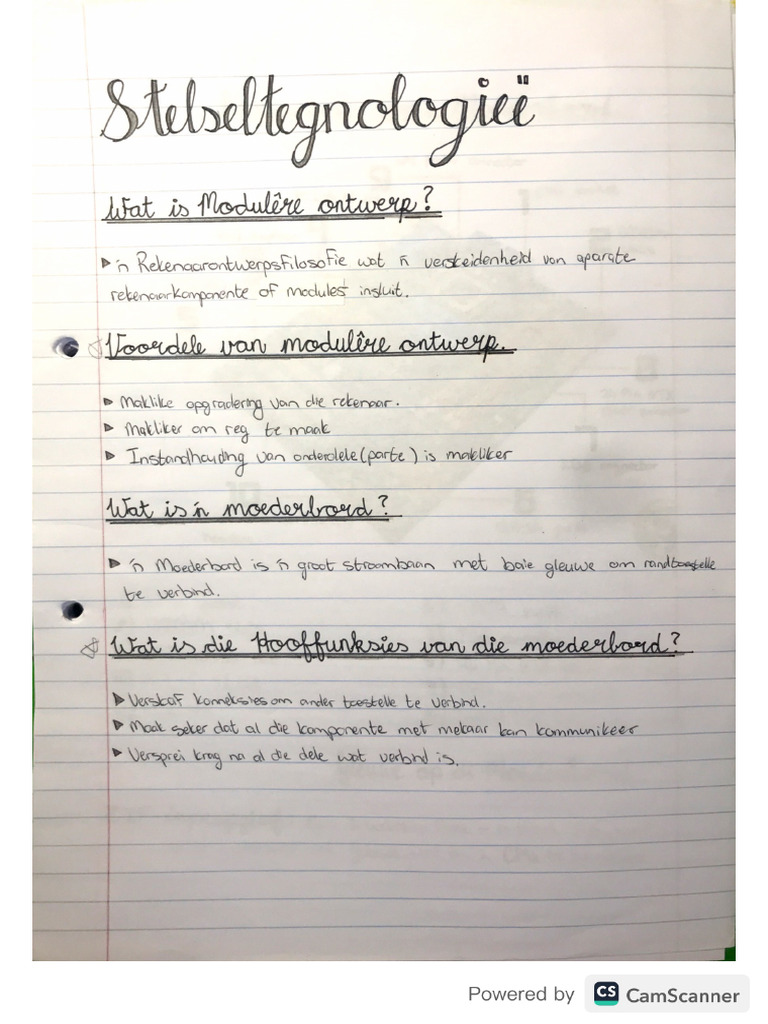 Stelseltegnologieë
Wat is Modulêre ontwerp?
'n Rekenaarontwerpsfilosofie wat 'n verskeidenheid van aparate
rekenaarkomponente of modules insluit.
Voordele van modulêre ontwerp.
Maklike opgradering van die rekenaar.
Makliker om reg te maak
Instandhouding van onderdele (parte) is makliker
Wat is 'n moederbord?
'n Moederbord is 'n groot stroombaan met baie gleuwe om randtoestelle
te verbind.
Wat is die Hooffunksies van die moederbord?
Verskaf konneksies om ander toestelle te verbind.
Maak seker dat al die komponente met mekaar kan kommunikeer
Versprei krag na al die dele wat verbind is.
Powered by CS CamScanner